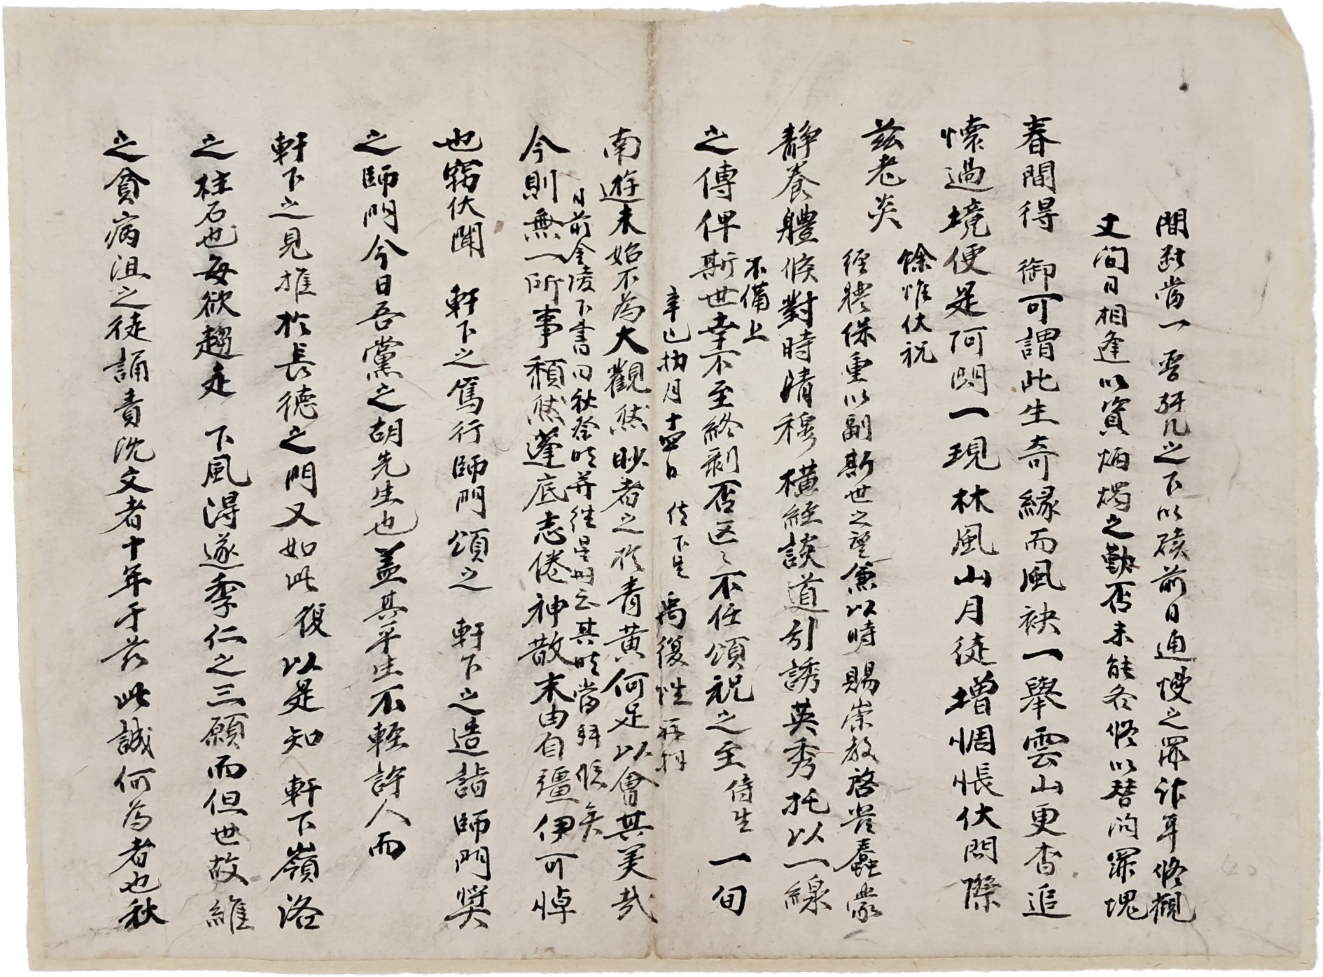 春間得 御可謂此生奇緣而風袂一舉雲山更杳追
懷過境便是阿閦一現林風山月徒增惆悵伏問際
玆老炎
靜養體候對時晴穆橫經談道引誘英秀托以一線
之傳俾斯世幸不至終剝否区〻不任頌祝之至侍生一旬
南遊未始不為大觀然眇者之於青黃何足以會其美哉
今則無一所事頹然蓬底志倦神散末由自彊伊可悼
也竊伏聞 軒下之篤行師門頌之 軒下之造詣師門獎
之師門今日吾黨之胡先生也蓋其平生不輕許人而
軒下之見推於長德之門又如此復以是知 軒下嶺洛
之柱石也每欲趨走 下風得遂季仁之三願而但世故維
之貧病沮之徒誦責沈文者十年于玆此誠何為者也秋
間 當一 軒几之下以 前日逋慢之罪 觀
丈間日相逢以資炳燭之勤否未能各修以替 罪愧
餘惟伏祝
經體保重以副斯世之望兼以時賜崇教啓發蠢蒙
不備上
辛巳 月十四日 侍下生 禹復性 再拜
日前金陵下書曰秋登時并往星州云其時當拜候矣